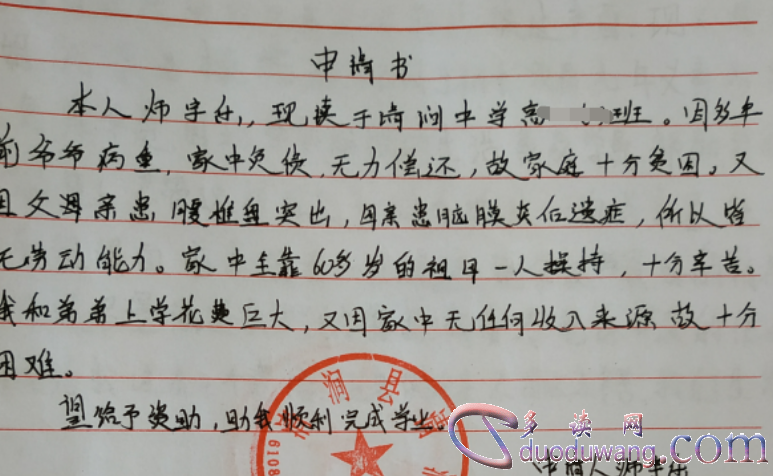 申请书
本人师宇乐,,现读于崎涧中学高 班。因多年
前爷爷病重,家中负债,无力偿还,故家庭十分贫困。又
因父母亲患腰椎盘突出,母亲患脑膜炎后遗症,所以皆
无劳动能力。家中全靠60多岁的祖母一人操持,十分辛苦。
我和弟弟上学花费巨大,又因家中无任何收入来源故十分
困难。
望给予资助,助我顺利完成学业。
涧县
6108
多读网
duoduwang.com
申请人师宇乐